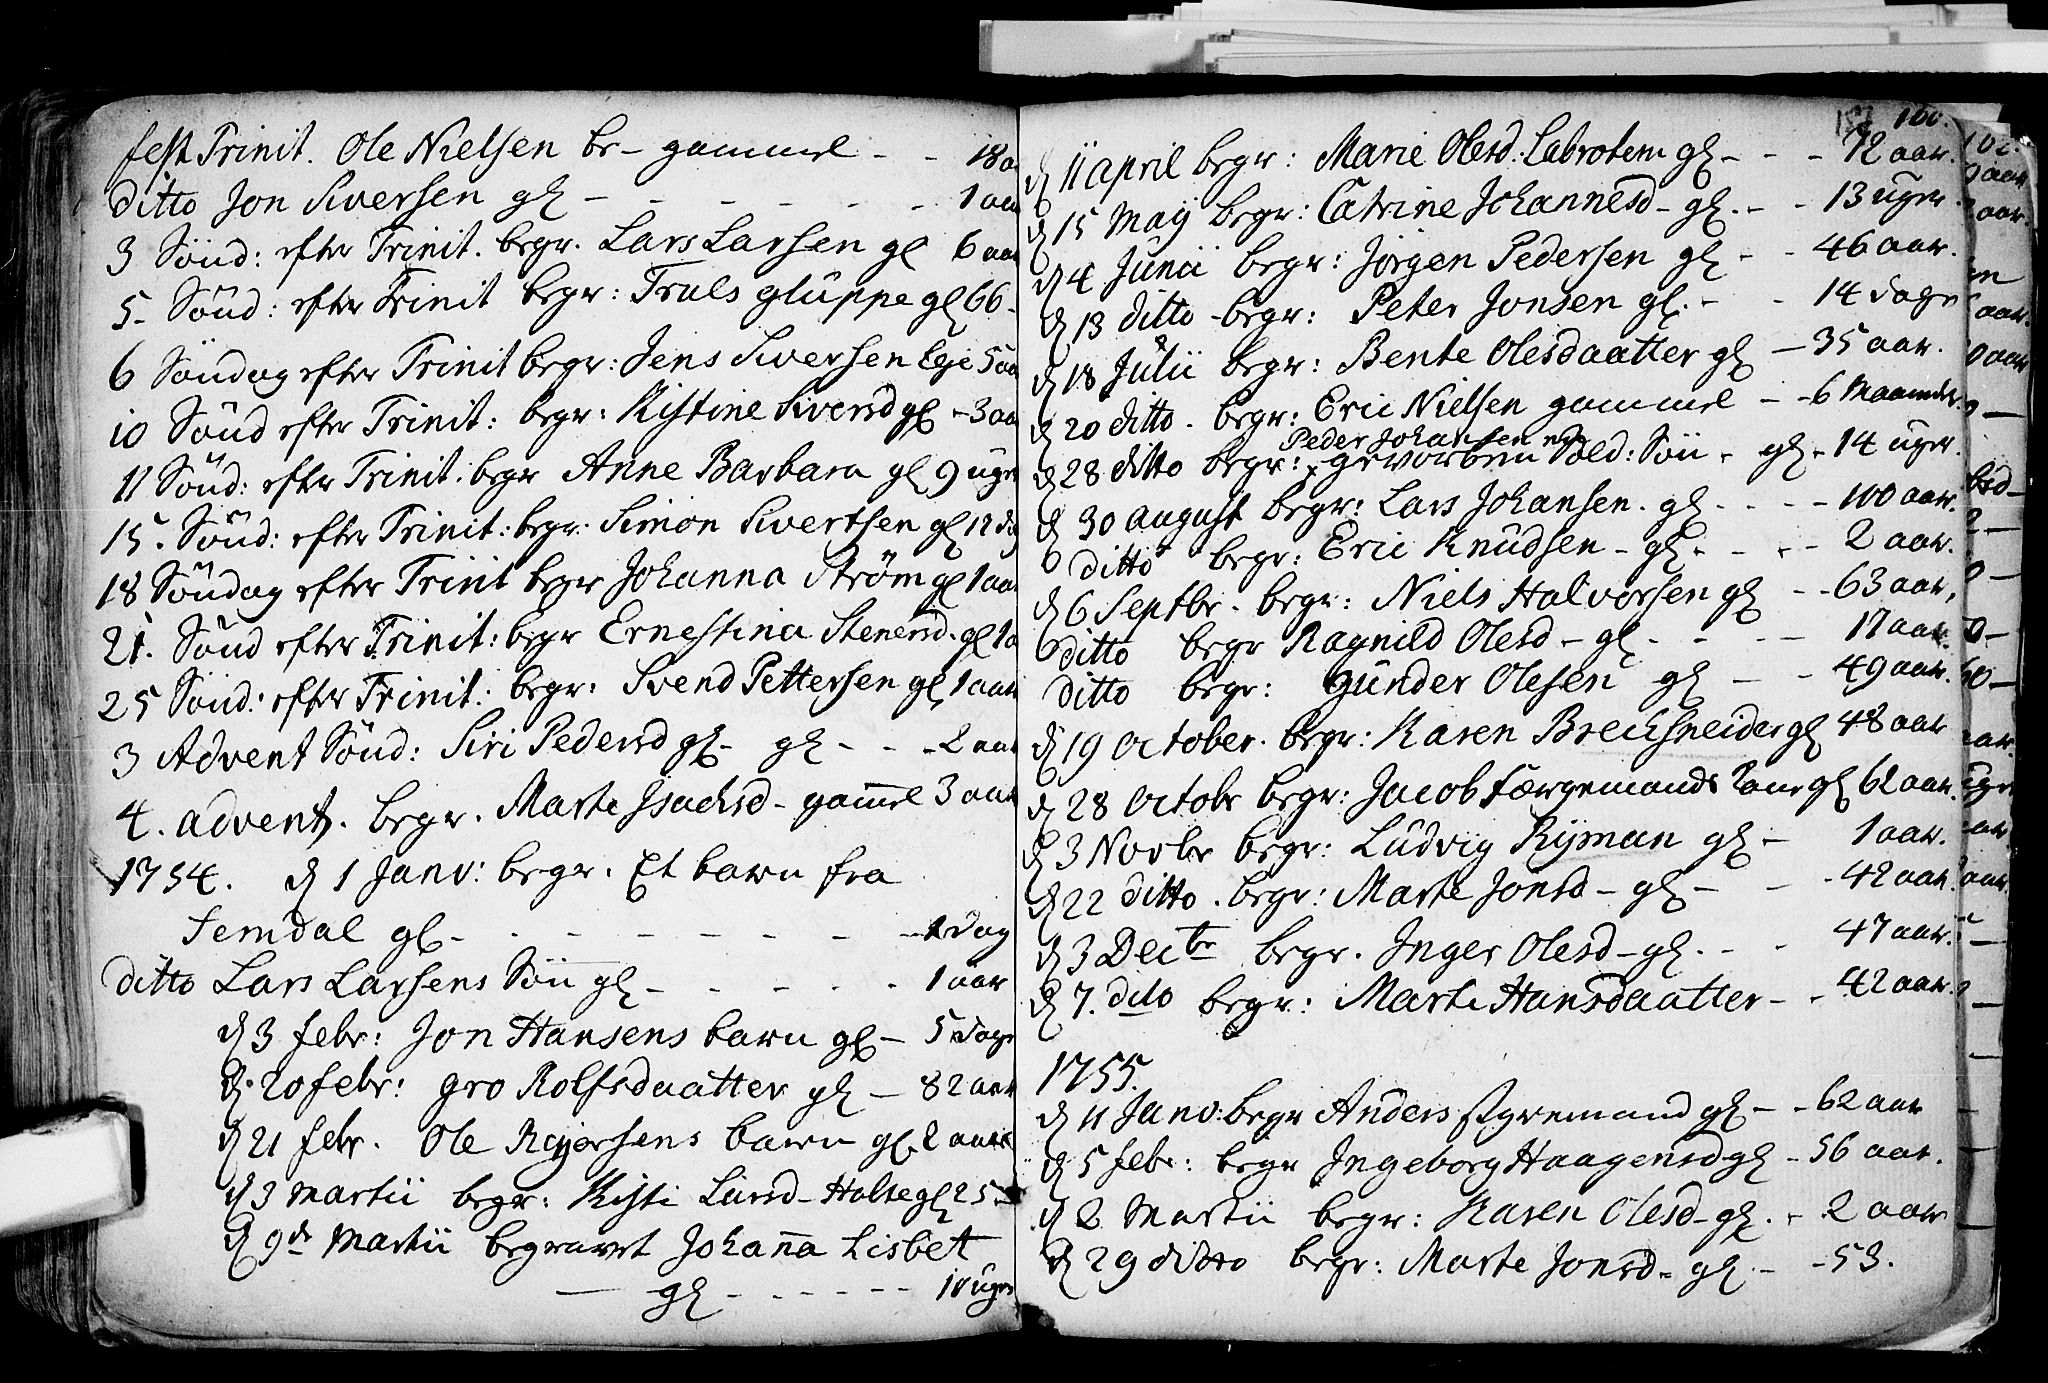 fest Trinit. Ole Nielsen be- gammel - - 18 a
ditto Jon Siversen gl - - - - - - 1 aar
3 Sønd: efter Trinit. begr. Lars Larsen gl 6 aar
5- Sønd: efter Trinit begr: Truls gluppe gl 66-
6 Søndag efter Trinit begr: Jens Siversen Eye 5 aar
10 Sønd efter Trinit: begr: Kistine Siversd gl - 3 aar
11 Sønd: efter Trinit. begr Anne Barbara gl 9 uger
15. Sønd: efter Trinit: begr: Simon Sivertsen gl 12 dag
18 Søndag efter Trinit begr Johanna Strøm gl 1 aar
21. Sønd efter Trinit: begr Ernestina Stenersd. gl 1 a
25 Sønd: efter Trinit: begr: Svend Pettersen gl 1 aar
3 Advent Sønd: Siri Pedersd gl- gl - - - 2 aar
4. advent. begr. Marte Isachsd - gam̄el 3 aar
1754. d 1 Janv: begr. Et barn fra
Femdal gl - - - - - - - - 1 dag
ditto Lars Larsens Søn gl - - - - - 1 aar
d 3 febr: Jon Hansens barn gl - 5 dage
d. 20 febr: gro Rolfsdaatter gl - 82 aar
d 21 febr. Ole Reyersens barn gl. 2 aar
d 3 martii begr: Kisti Larsd - Halse gl 25 -
d 9de Martii begravet Johan̄a Lisbet
- gl - - - - - - 10 uger
100.
d 11 april begr: Marie Olesd: Labrotem gl - - - 72 aar.
d 15 May begr: Catrine Johannesd - gl. - - 13 uger
d 4 Junii begr: Jørgen Pedersen gl - - 46 aar.
d 13 ditto - begr: Peter Jonsen gl. - - 14 dage
d 18 Julii begr: Bente Olesdaatter gl - 35 aar.
d 20 ditto. begr: Eric Nielsen gammel - - 6 Maaneder.
Peder Johansen
d 28 ditto begr: gevorben Sold: Søn - gl - 14 uger.
d 30 august begr: Lars Johansen. gl - - - - 100 aar.
ditto begr: Eric Knudsen - gl - - - - 2 aar.
d 6 Septbr. begr: Niels Halvorsen gl - - 63 aar,
ditto begr Ragnild Olesd - gl - - - - 17 aar.
ditto begr: Gunder Olesen gl - - 49 aar.
d 19 October. begr: Karen Breichsneider gl 48 aar
d 28 Octobr begr: Jacob færgemands Kone gl 62 aar.
d 3 Novbr begr: Ludvig Ryman gl - 1 aar.
d 22 ditto. begr: Marte Jonsd - gl - - - 42 aar.
d 3 Decbr begr. Inger Olesd - gl. - - 47 aar.
d 7. dito begr: Marte Hansdaatter - - 42 aar.
1755.
d 11 Janv: begr Anders Styremand gl - - 62 aar
d 5 febr: begr Ingeborg Haagensd gl - 56 aar.
d 2 Martii begr: Karen Olesd - gl. - 2 aar
d 29 ditto begr: Marte Jonsd - gl - - 53.